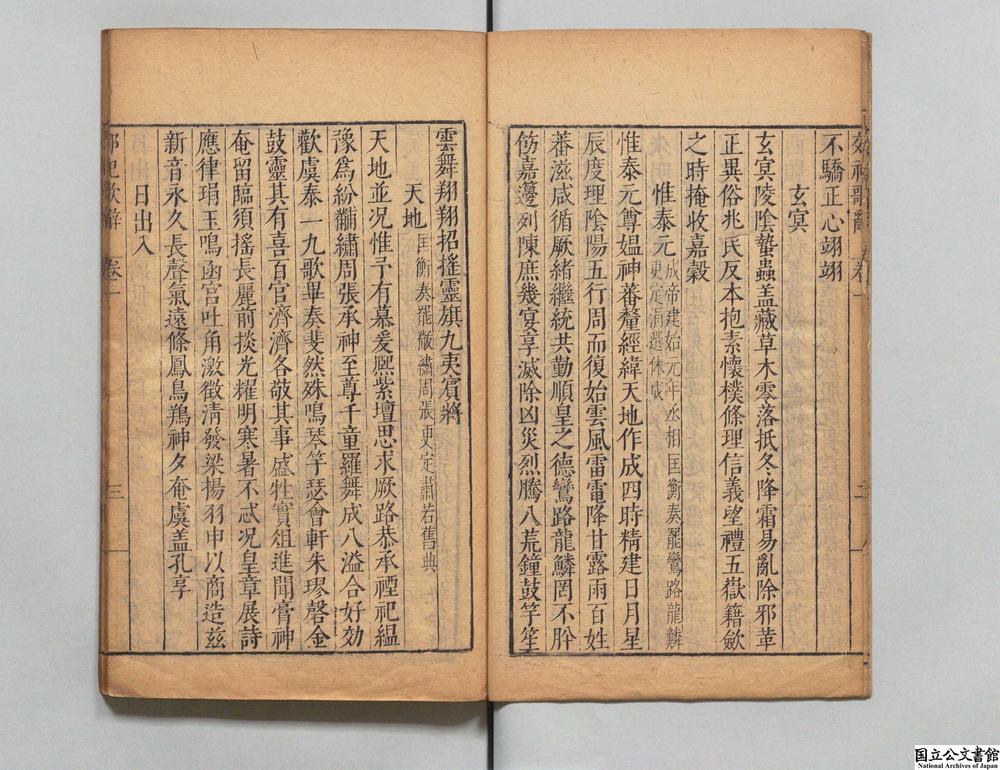 郊祀歌辭 卷一 二
不驕正心翊翊
玄冥
玄冥陵陰蟄蟲蓋藏草木零落抵冬降霜易亂除邪革
正異俗兆民反本抱素懷樸條理信義望禮五嶽籍斂
之時掩收嘉穀
惟泰元 成帝建始元年丞相匡衡奏罷鸞路龍鱗更定涓選休成
惟泰元尊媪神蕃釐經緯天地作成四時精建日月星
辰度理陰陽五行周而復始雲風雷電降甘露雨百姓
蕃滋咸循厥緒繼統共勤順皇之德鸞路龍鱗罔不肸
飭嘉籩列陳庶幾宴享滅除凶災烈騰八荒鐘鼓竽笙
雲舞翔翔招搖靈旗九夷賓將
天地 匡衡奏罷黼繡周張更定肅若舊典
天地並況惟予有慕爰熙紫壇思求厥路恭承禋祀縕
豫爲紛黼繡周張承神至尊千童羅舞成八溢合好効
歡虞泰一九歌畢奏斐然殊鳴琴竽瑟會軒朱璆磬金
鼓靈其有喜百官濟濟各敬其事盛牲實俎進聞膏神
奄留臨須搖長麗前掞光耀明寒暑不忒況皇章展詩
應律琄玉鳴函宮吐角激徵清發梁揚羽申以商造茲
新音永久長聲氣遠條鳳鳥鵜神夕奄虞蓋孔享
日出入
郊祀歌辭 卷一 三
国立公文書館
National Archives of Japan